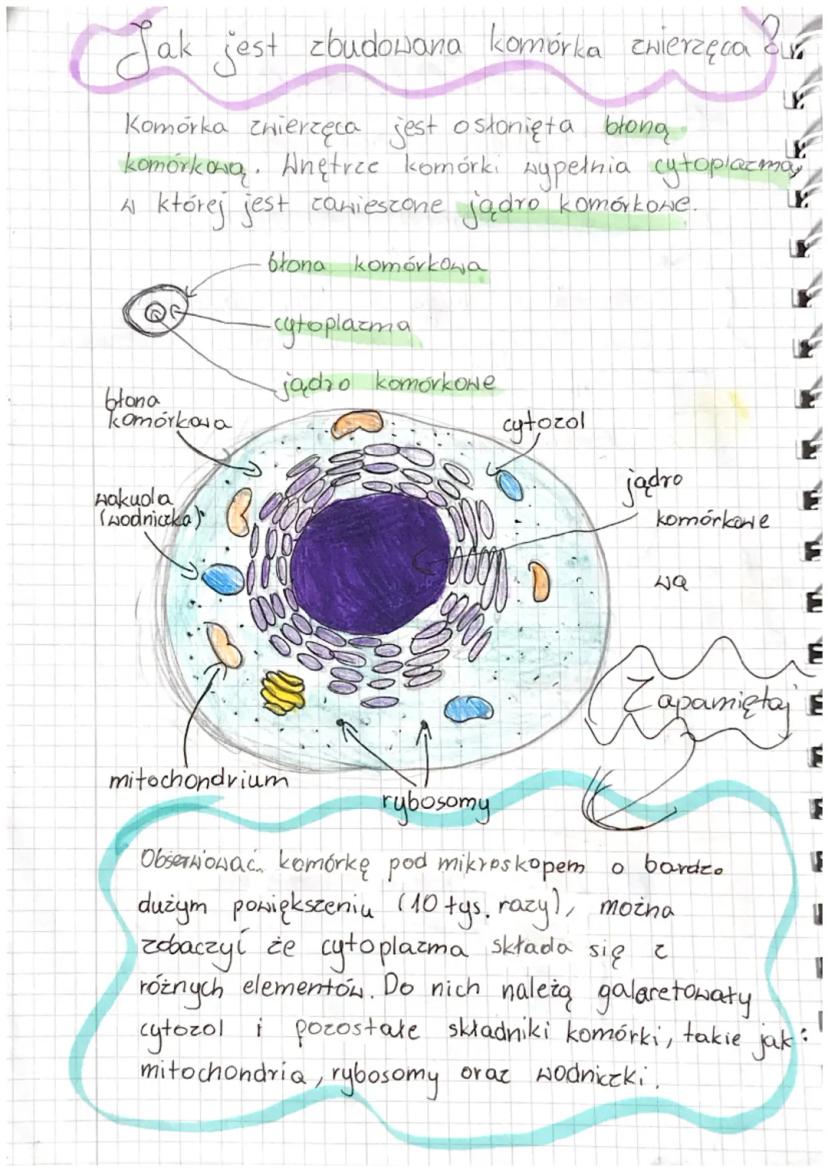 Jak jest zbudowana komórka zwierzęca?
Komórka zwierzęca jest osłonięta błoną
komórkową. Wnętrze komórki wypełnia cytoplazma,
w której jest zawieszone jądro komórkowe.
błona komórkowa
cytoplazma
jądro komórkowe
błona
komórkowa
cytozol
jądro
komórkowe
wakuola
(wodniczka)
wą
Zapamiętaj
mitochondrium
rybosomy
Obserwować komórkę pod mikroskopem o bardzo
dużym powiększeniu (10 tys. razy), można
zobaczyć że cytoplazma składa się z
różnych elementów. Do nich należą galaretowaty
cytozol i pozostałe składniki komórki, takie jak:
mitochondria, rybosomy oraz wodniczki.